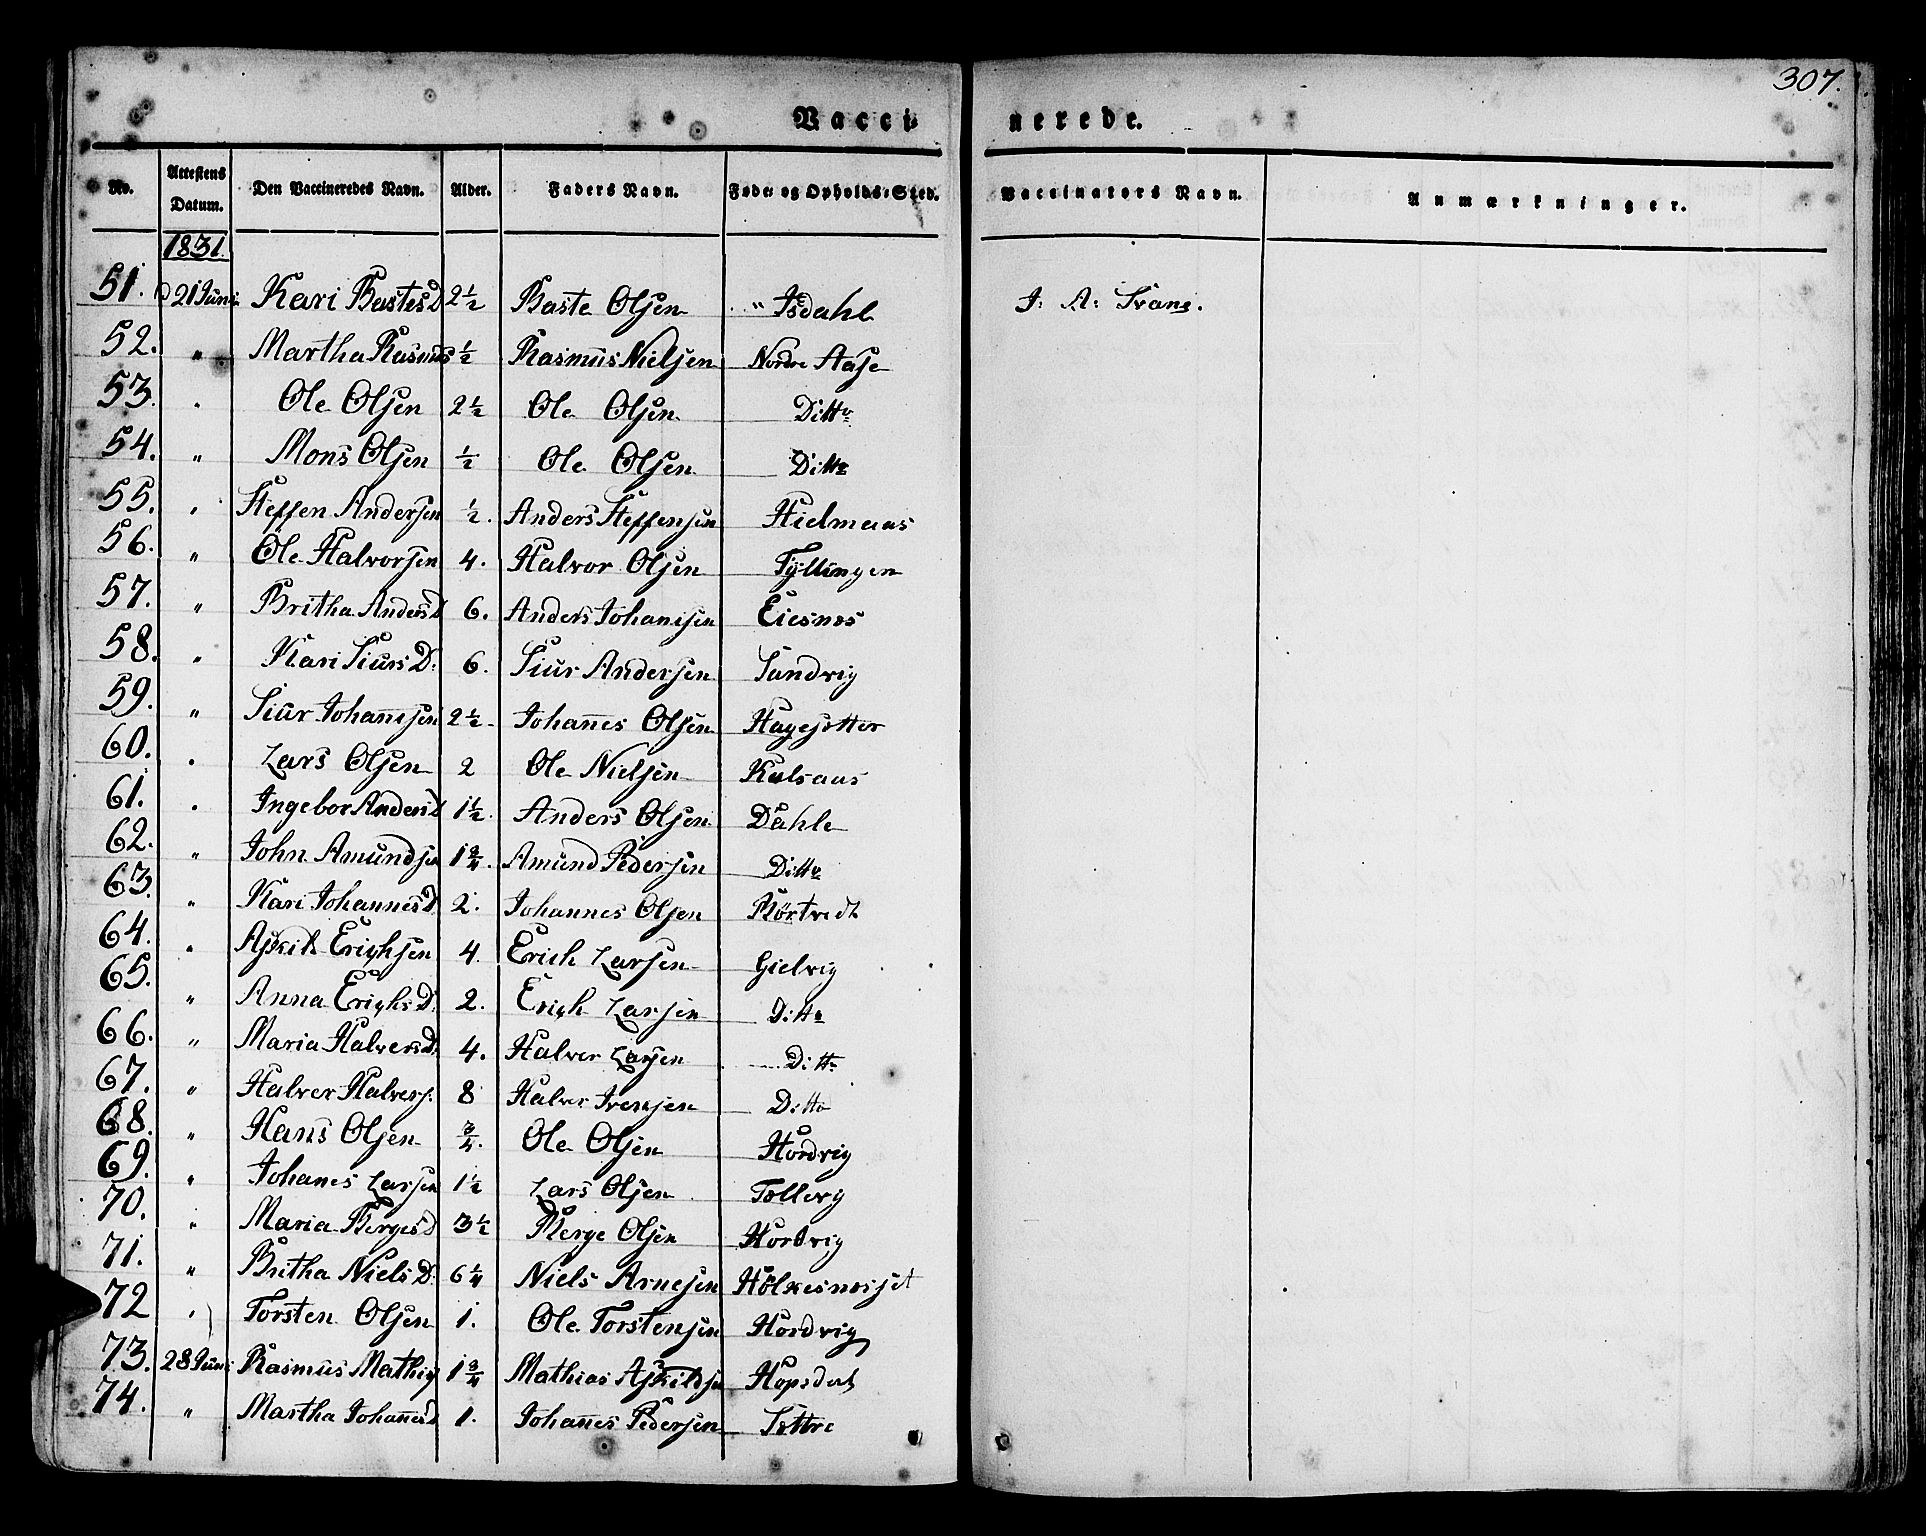 307.
Vacci-nerede.
No. Attestens Datum. Den Vaccineredes Navn. Alder. Faders Navn. Føde- og Opholds-Sted. Vaccinators Navn. Anmærkninger.
1831.
51. d 21 Juni Kari BastesD 2 1/2 Baste Olsen " Isdahl J: A: Svang.
52. " Martha Rasmus 1/2 Rasmus Nielsen Nordre Aase
53. " Ole Olsen 2 1/2 Ole Olsen Ditto
54. " Mons Olsen 1/2 Ole Olsen Ditto
55. " Steffen Andersen 1/2. Anders Steffensen Hielmaas
56. " Ole Halvorsen 4. Halvor Olsen Tyllingen
57. " Britha AndersD 6. Anders Johansen Eicsnes
58. " Kari SiursD. 6. Siur Andersen Sundvig
59. " Siur Johannesen 2 1/2 Johannes Olsen Hagesætter
60. " Lars Olsen 2 Ole Nielsen Kulsaas
61. " Ingebor AndersD 1 1/2. Anders Olsen Dahle
62. " John Amundsen 1 3/4. Amund Pedersen Ditto
63. " Kari JohannesD. 2. Johannes Olsen Rörtvedt
64. " Askild Erichsen 4. Erich Larsen Gielvig
65. " Anna ErichsD. 2. Erich Larsen Ditto
66. " Maria HalversD. 4. Halver Larsen Ditto
67. " Halver Halvers. 8 Halver Ivensen Ditto
68. " Hans Olsen 3/4. Ole Olsen Hordvig
69. " Johanes Larsen 1 1/2 Lars Olsen Tellevig
70. " Maria BergesD 3 1/2 Berge Olsen Hordvig
71. " Britha NielsD. 6 1/4 Niels Arnesen Hölkesnesset
72 " Torsten Olsen 1. Ole Torstensen Hordvig
73. 28 Juni Rasmus Mathis 1 3/4 Mathias Askildsen Hopsdal
74. " Martha JohanesD 1. Johannes Pedersen Sættre